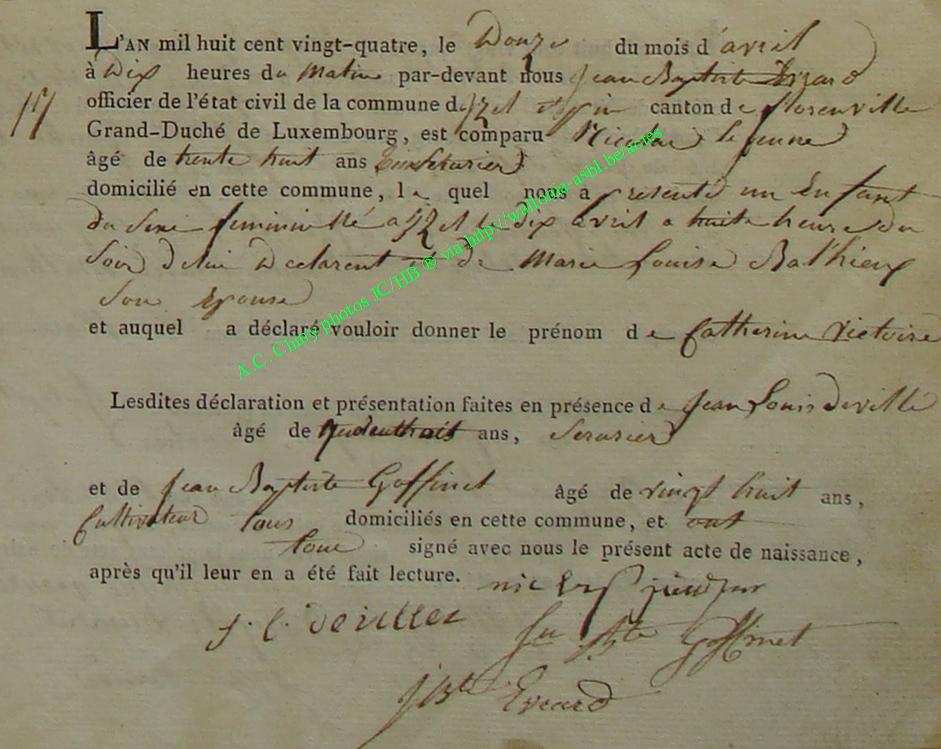 L'AN mil huit cent vingt-quatre, le Douze du mois d'avril
à Dix heures du Matin par-devant nous Jean Baptiste Evrard
17 officier de l'état civil de la commune d'Izel canton de florenville
Grand-Duché de Luxembourg, est comparu Nicolas lejeune
âgé de trente huit ans Serurier
domicilié en cette commune, le quel nous a presenté un Enfant
du Sexe feminin né a Izel le Dix avril a huite heure du
Soir de lui Declarent et de Marie Louise Bathieux
Son Epouse
et auquel a déclaré vouloir donner le prénom de Catherine Victoire
Lesdites déclaration et présentation faites en présence de Jean Louis Deville
âgé de ans, Serurier
et de Jean Baptiste Goffinet âgé de vingt huit ans,
Cultivateur tous domiciliés en cette commune, et ont
tous signé avec nous le présent acte de naissance,
après qu'il leur en a été fait lecture.
j. l. deviller
Jn Bte Goffinet
j Bte Evrard
A.C. Chiny photos JC/HB ® via http://wallonia-asbl.be/actes